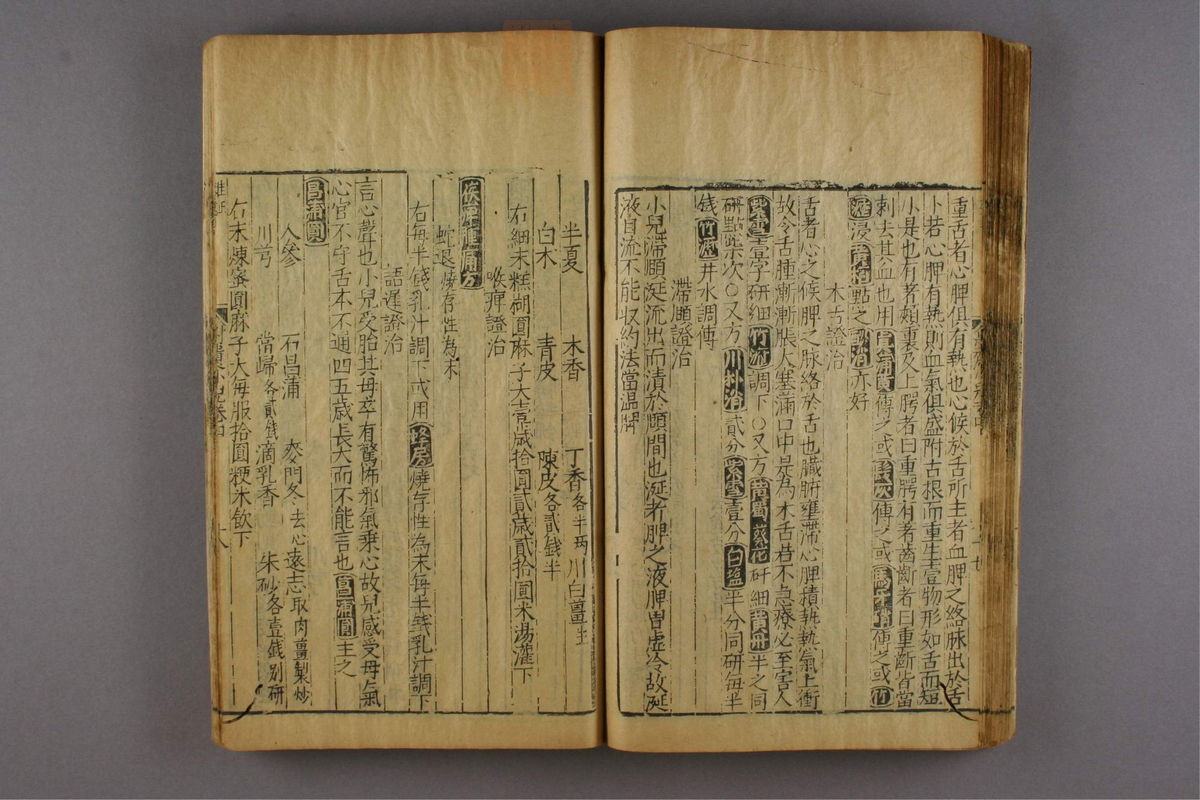 重舌者心脾俱有熱也心候於舌所主者血脾之絡脉出於舌
下若心脾有熱則血氣俱盛附舌根而重生壹物形如舌而短
小是也有著頰裏及上腭者曰重腭有著齒齗者曰重齗皆當
刺去其血也用眞蒲黃傅之或髮灰傅之或馬牙硝傅之或竹
瀝浸黃栢點之朴消亦好
木舌證治
舌者心之候脾之脉絡於舌也臟腑壅滯心脾積熱熱氣上衝
故令舌腫漸漸脹大塞滿口中是為木舌若不急療必至害人
紫雪壹字研細竹瀝調下○又方黃蜀葵花研細黃丹半之同
研點柒次○又方川朴消貳分紫雪壹分白塩半分同研每半
錢竹瀝井水調傅
滯頤證治
小兒滯頤涎流出而漬於頤間也涎者脾之液脾胃虛冷故涎
液自流不能収約法當温脾
半夏 木香 丁香各半兩 川白薑生
白木 青皮 陳皮各貳錢半
右細末糕糊圓麻子大壹歲拾圓貳歲貳拾圓米湯灌下
喉痺證治
喉痺進通方
蛇退燒存性為末
右每半錢乳汁調下或用蜂房燒存性為末每半錢乳汁調下
語遲證治
言心聲也小兒受胎其母卒有驚怖邪氣乗心故兒感受母氣
心官不守舌本不通四五歲長大而不能言也菖蒲圓主之
菖蒲圓
人參 石菖蒲 麥門冬去心 遠志取肉薑製炒
川芎 當歸各貳錢 滴乳香 朱砂各壹錢別研
右末煉蜜圓麻子大每服拾圓粳米飲下